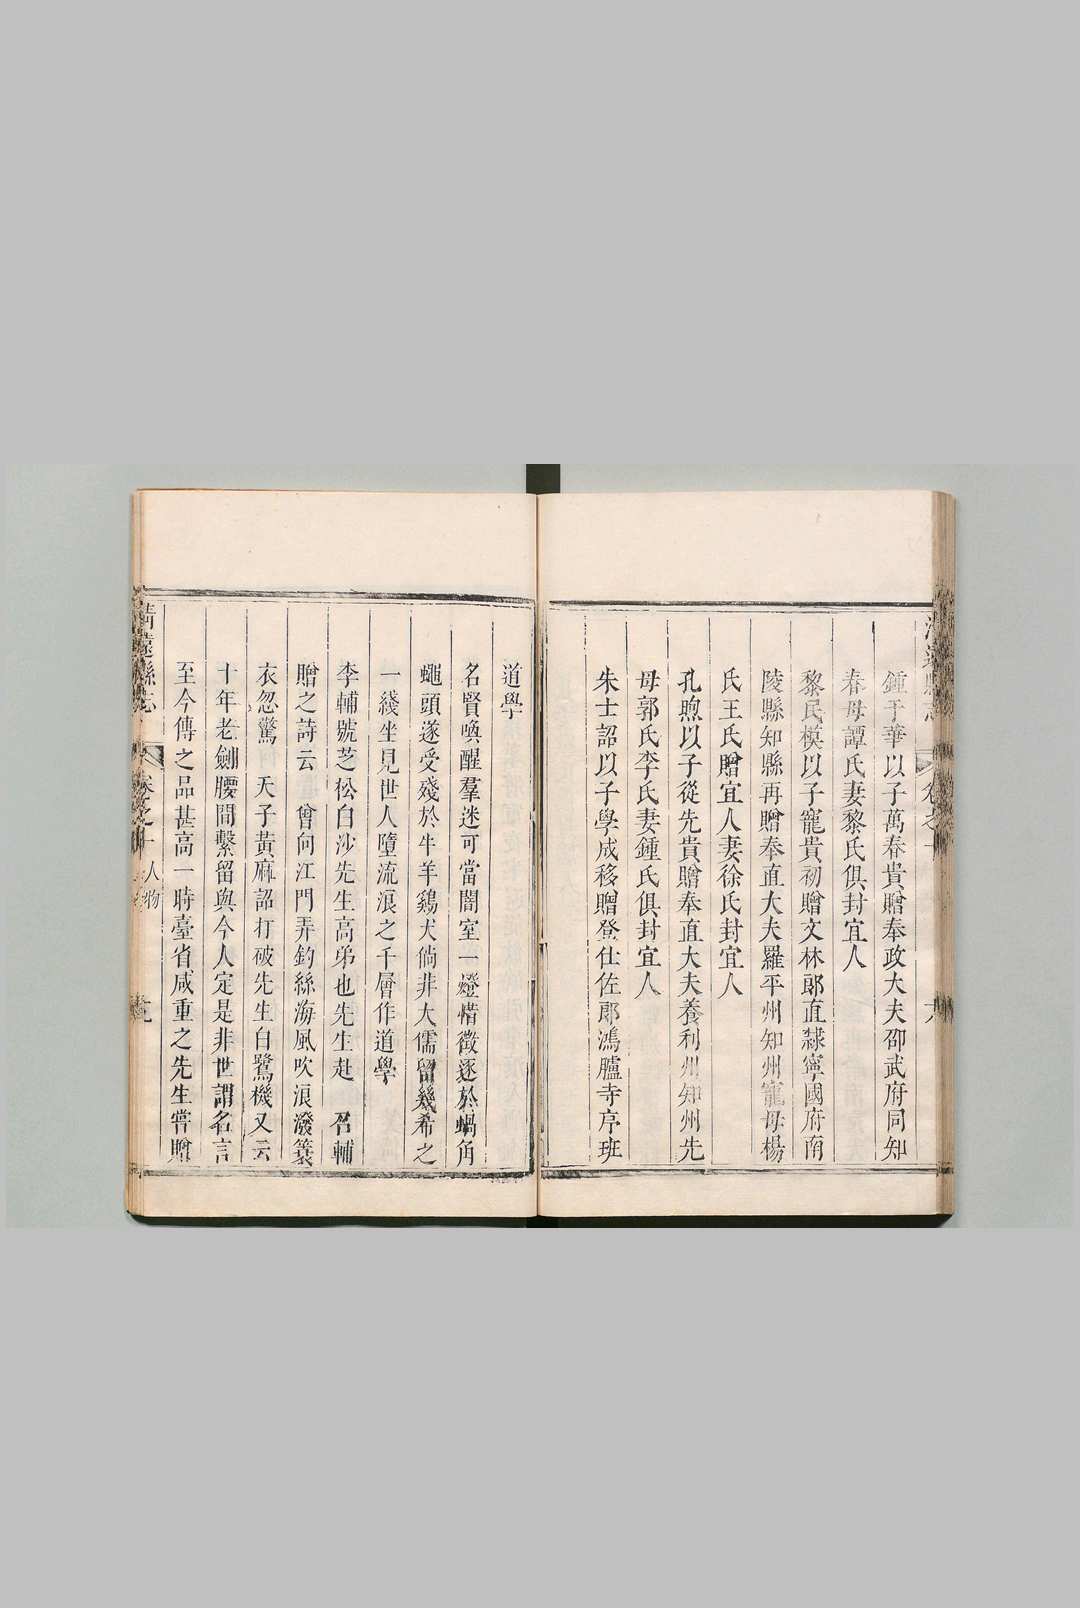 鍾于華以子萬春貴贈奉政大夫邵武府同知
春母譚氏妻黎氏俱封宜人
黎民模以子寵貴初贈文林郎直隸寧國府南
陵縣知縣再贈奉直大夫羅平州知州寵母楊
氏王氏贈宜人妻徐氏封宜人
孔煦以子從先貴贈奉直大夫養利州知州先
母郭氏李氏妻鍾氏俱封宜人
朱士詔以子學成移贈登仕佐郎鴻臚寺序班
道學
名賢喚醒羣迷可當闇室一燈惜徵逐於蝸角
蠅頭遂受殘於牛羊鷄犬倘非大儒留幾希之
一綫坐見世人墮流浪之千層作道學
李輔號芝松白沙先生高弟也先生赴 召輔
贈之詩云 曾向江門弄釣絲海風吹浪潑簑
衣忽驚 天子黃麻詔打破先生白鷺機又云
十年老劒腰間繫留與今人定是非世謂名言
至今傳之品甚高一時臺省咸重之先生嘗贈
清遠縣志 卷之十 人物